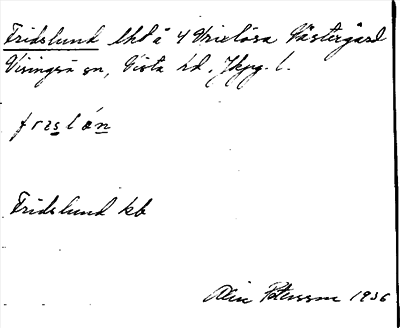 Fridslund lht å 4 Vrixlösa Västergård
Visingsö sn, Vista hd, Jkpg. l.
frislón
Fridslund kb
Petersson 1936